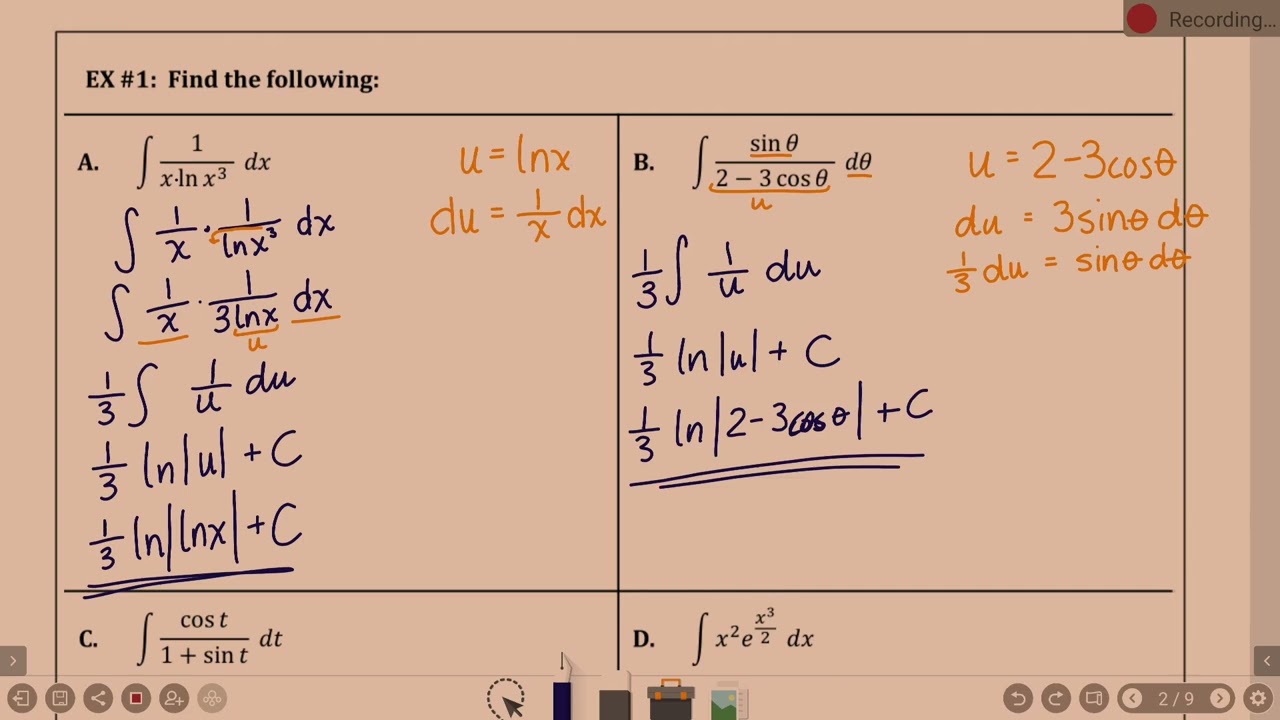 Recording...
EX #1: Find the following:
A. ∫ 1/(x·ln x³) dx
u = lnx
du = 1/x dx
∫ 1/x · 1/lnx³ dx
∫ 1/x · 1/3lnx dx
u
1/3 ∫ 1/u du
1/3 ln|u| + C
1/3 ln|lnx| + C
B. ∫ sin θ/(2 − 3 cos θ) dθ
u
u = 2-3cosθ
du = 3sinθ dθ
1/3 du = sinθ dθ
1/3 ∫ 1/u du
1/3 ln|u| + C
1/3 ln|2-3cosθ| + C
C. ∫ cos t/(1 + sin t) dt
D. ∫ x²e^(x³/2) dx
2/9